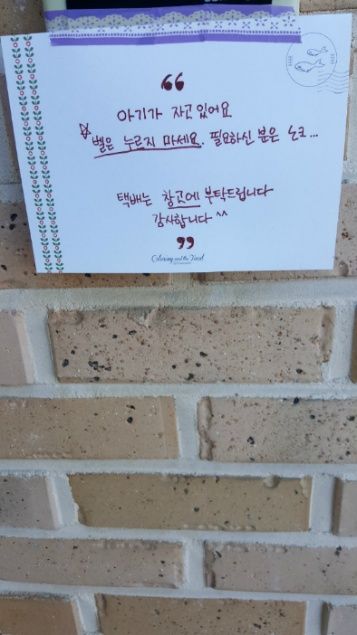 “
아기가 자고있어요
☆벨은 누르지 마세요. 필요하신 분은 노크...
택배는 창고에 부탁드립니다
감사합니다^^
”